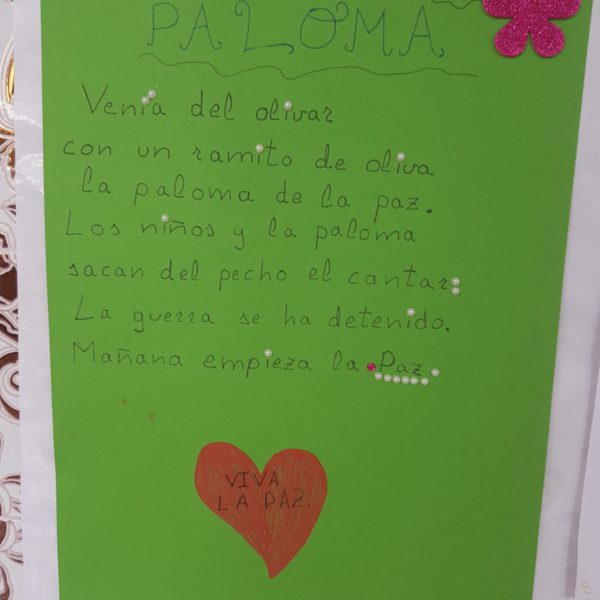 PALOMA
Venía del olivar
con un ramito de oliva
la paloma de la paz.
Los niños y la paloma
sacan del pecho el cantar:
La guerra se ha detenido.
Mañana empieza la Paz.
VIVA
LA PAZ.